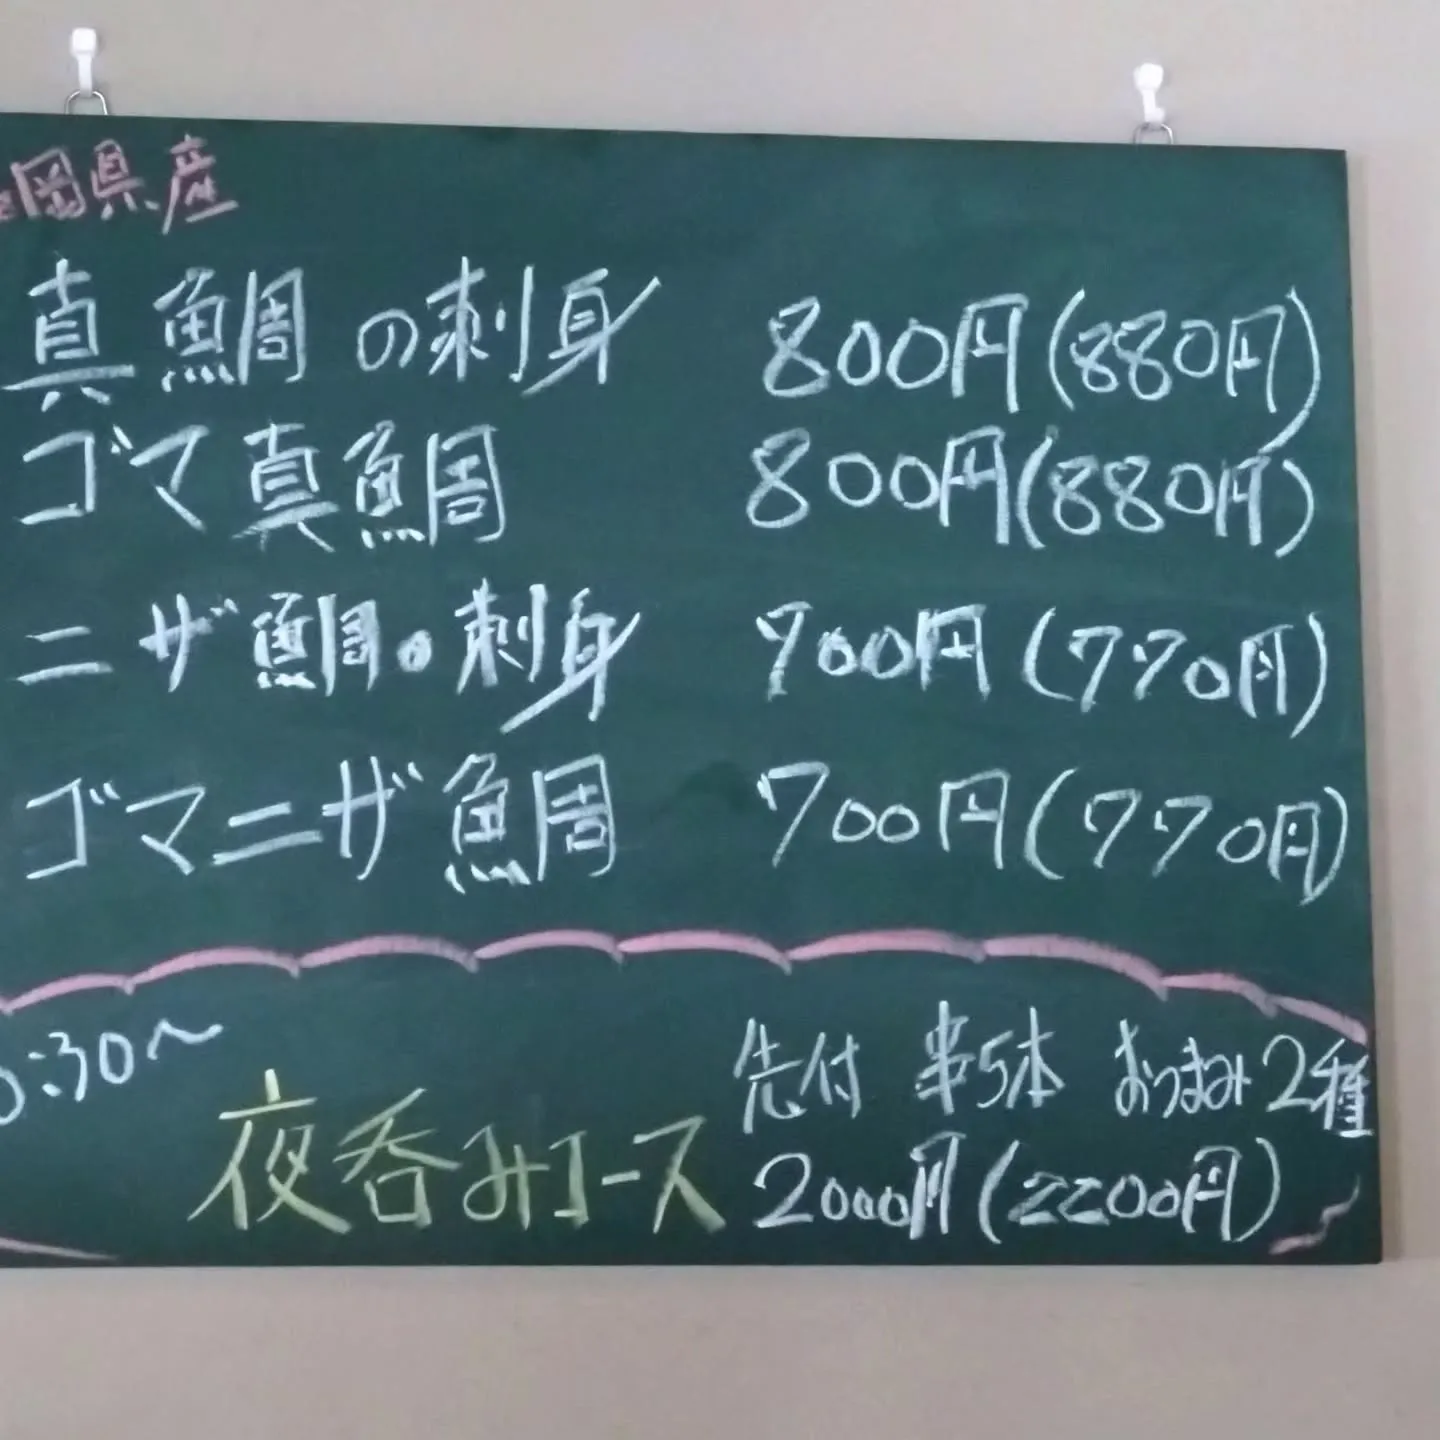 岡県産
真鯛の刺身 800円(880円)
ゴマ真鯛 800円(880円)
ニザ鯛の刺身 700円(770円)
ゴマニザ鯛 700円(770円)
0:30〜
先付 串5本 おつまみ2種
夜呑みコース 2000円(2200円)